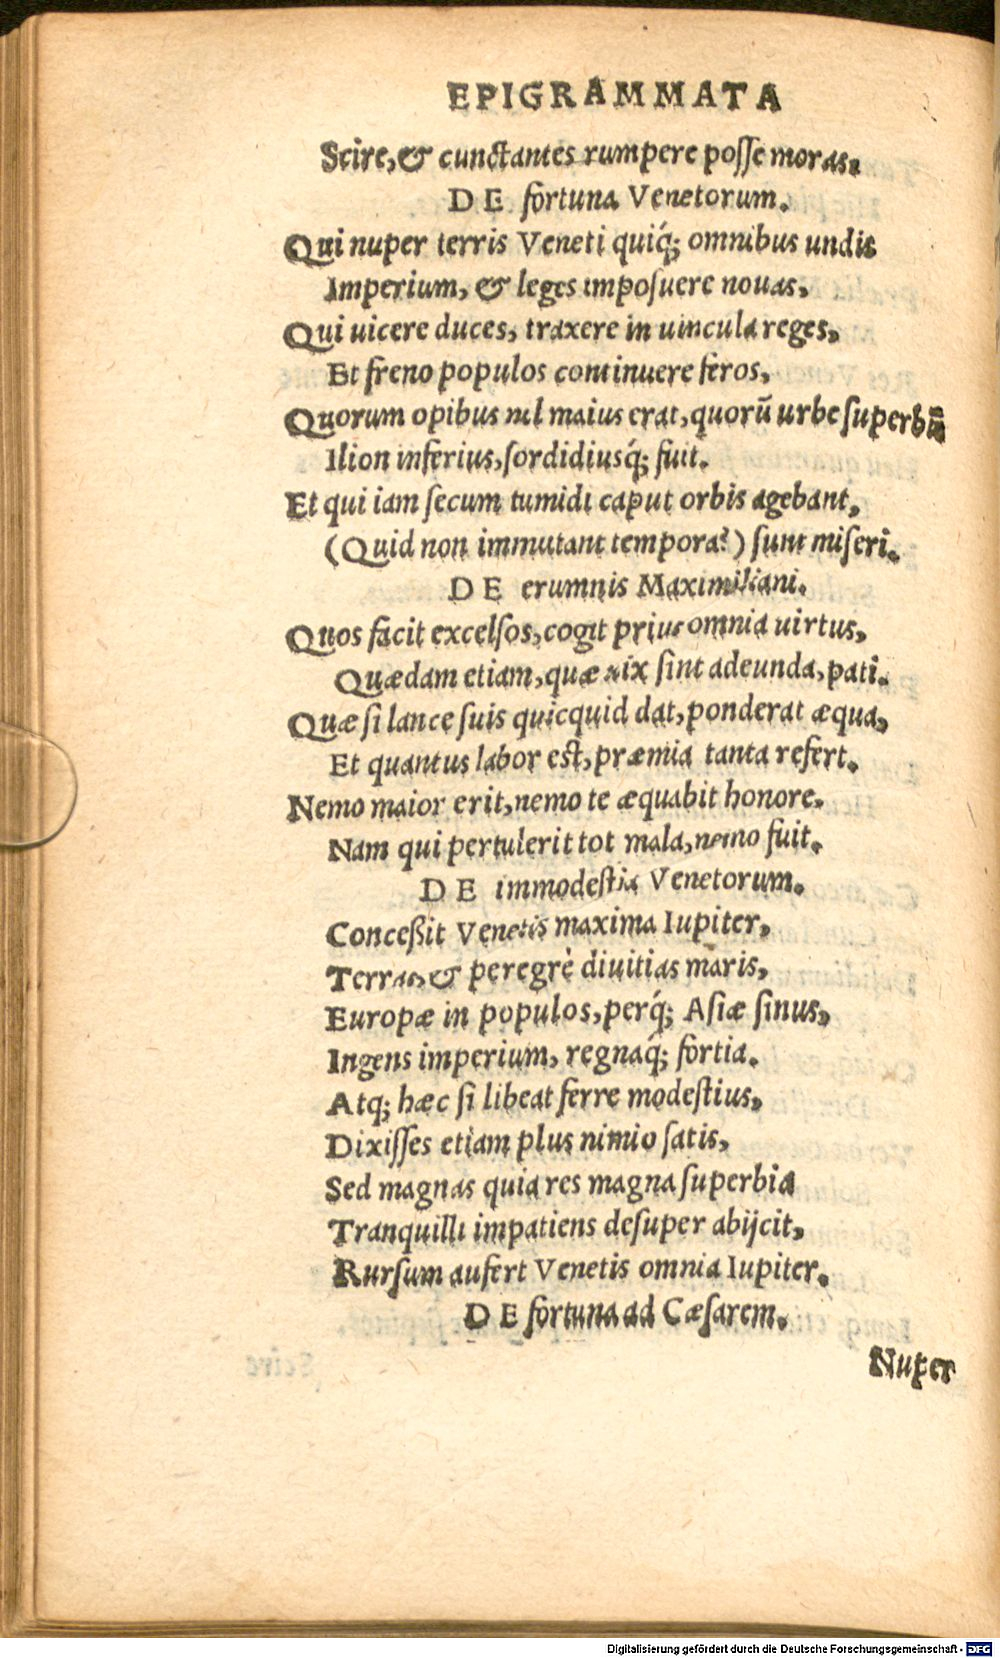 EPIGRAMMATA
Scire, & cunctantes rumpere posse moras.
DE fortuna Venetorum.
Qui nuper terris Veneti quiq́; omnibus undis
Imperium, & leges imposuere nouas,
Qui uicere duces, traxere in uincula reges,
Et freno populos continuere feros,
Quorum opibus nil maius erat, quorū urbe superbū
Ilion inferius, sordidiusq́; fuit.
Et qui iam secum tumidi caput orbis agebant,
(Quid non immutant tempora?) sunt miseri.
DE erumnis Maximiliani.
Quos facit excelsos, cogit prius omnia uirtus,
Quædam etiam, quæ uix sint adeunda, pati.
Quæ si lance suis quicquid dat, ponderat æqua,
Et quantus labor est, præmia tanta refert.
Nemo maior erit, nemo te æquabit honore.
Nam qui pertulerit tot mala, nemo fuit.
DE immodestia Venetorum.
Conceßit Venetis maxima Iupiter,
Terras, & peregrè diuitias maris,
Europæ in populos, perq́; Asiæ sinus,
Ingens imperium, regnaq́; fortia.
Atq; hæc si libeat ferre modestius,
Dixisses etiam plus nimio satis,
Sed magnas quia res magna superbia
Tranquilli impatiens desuper abijcit,
Rursum aufert Venetis omnia Iupiter.
DE fortuna ad Cæsarem.
Nuper
Digitalisierung gefördert durch die Deutsche Forschungsgemeinschaft - DFG